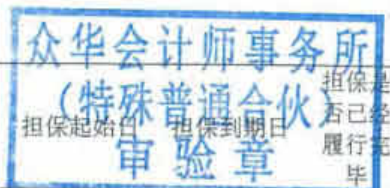 众华会计师事务所
（特殊普通合伙）
审验章
担保起始日 担保到期日
担保是
否已经
履行完
毕